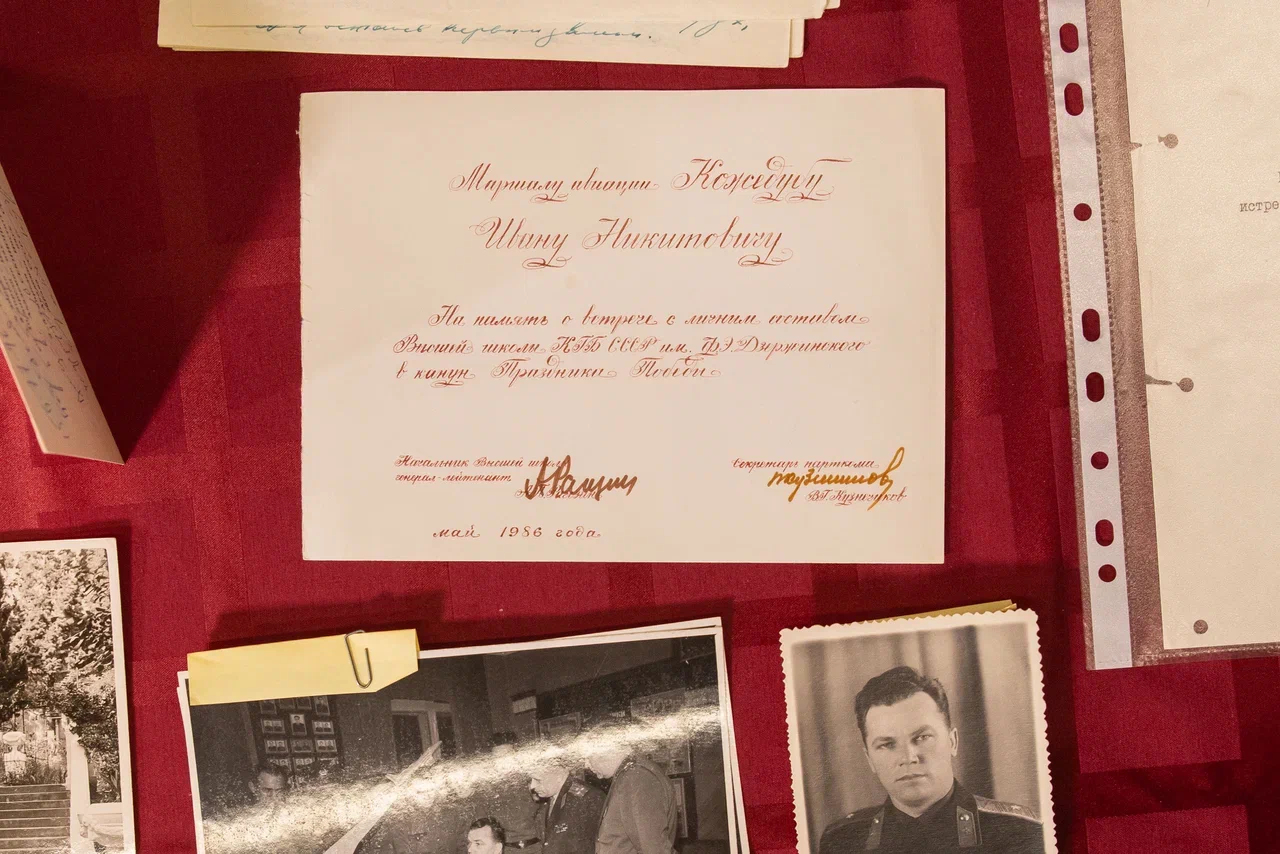 Маршалу авиации Кожедубу
Ивану Никитовичу
На память о встрече с личным составом
Высшей школы КГБ СССР им. Ф.Э.Дзержинского
в канун Праздника Победы
Начальник Высшей школы
генерал-лейтенант
Секретарь парткома
В.Г.Кузнечиков
май 1986 года
истре